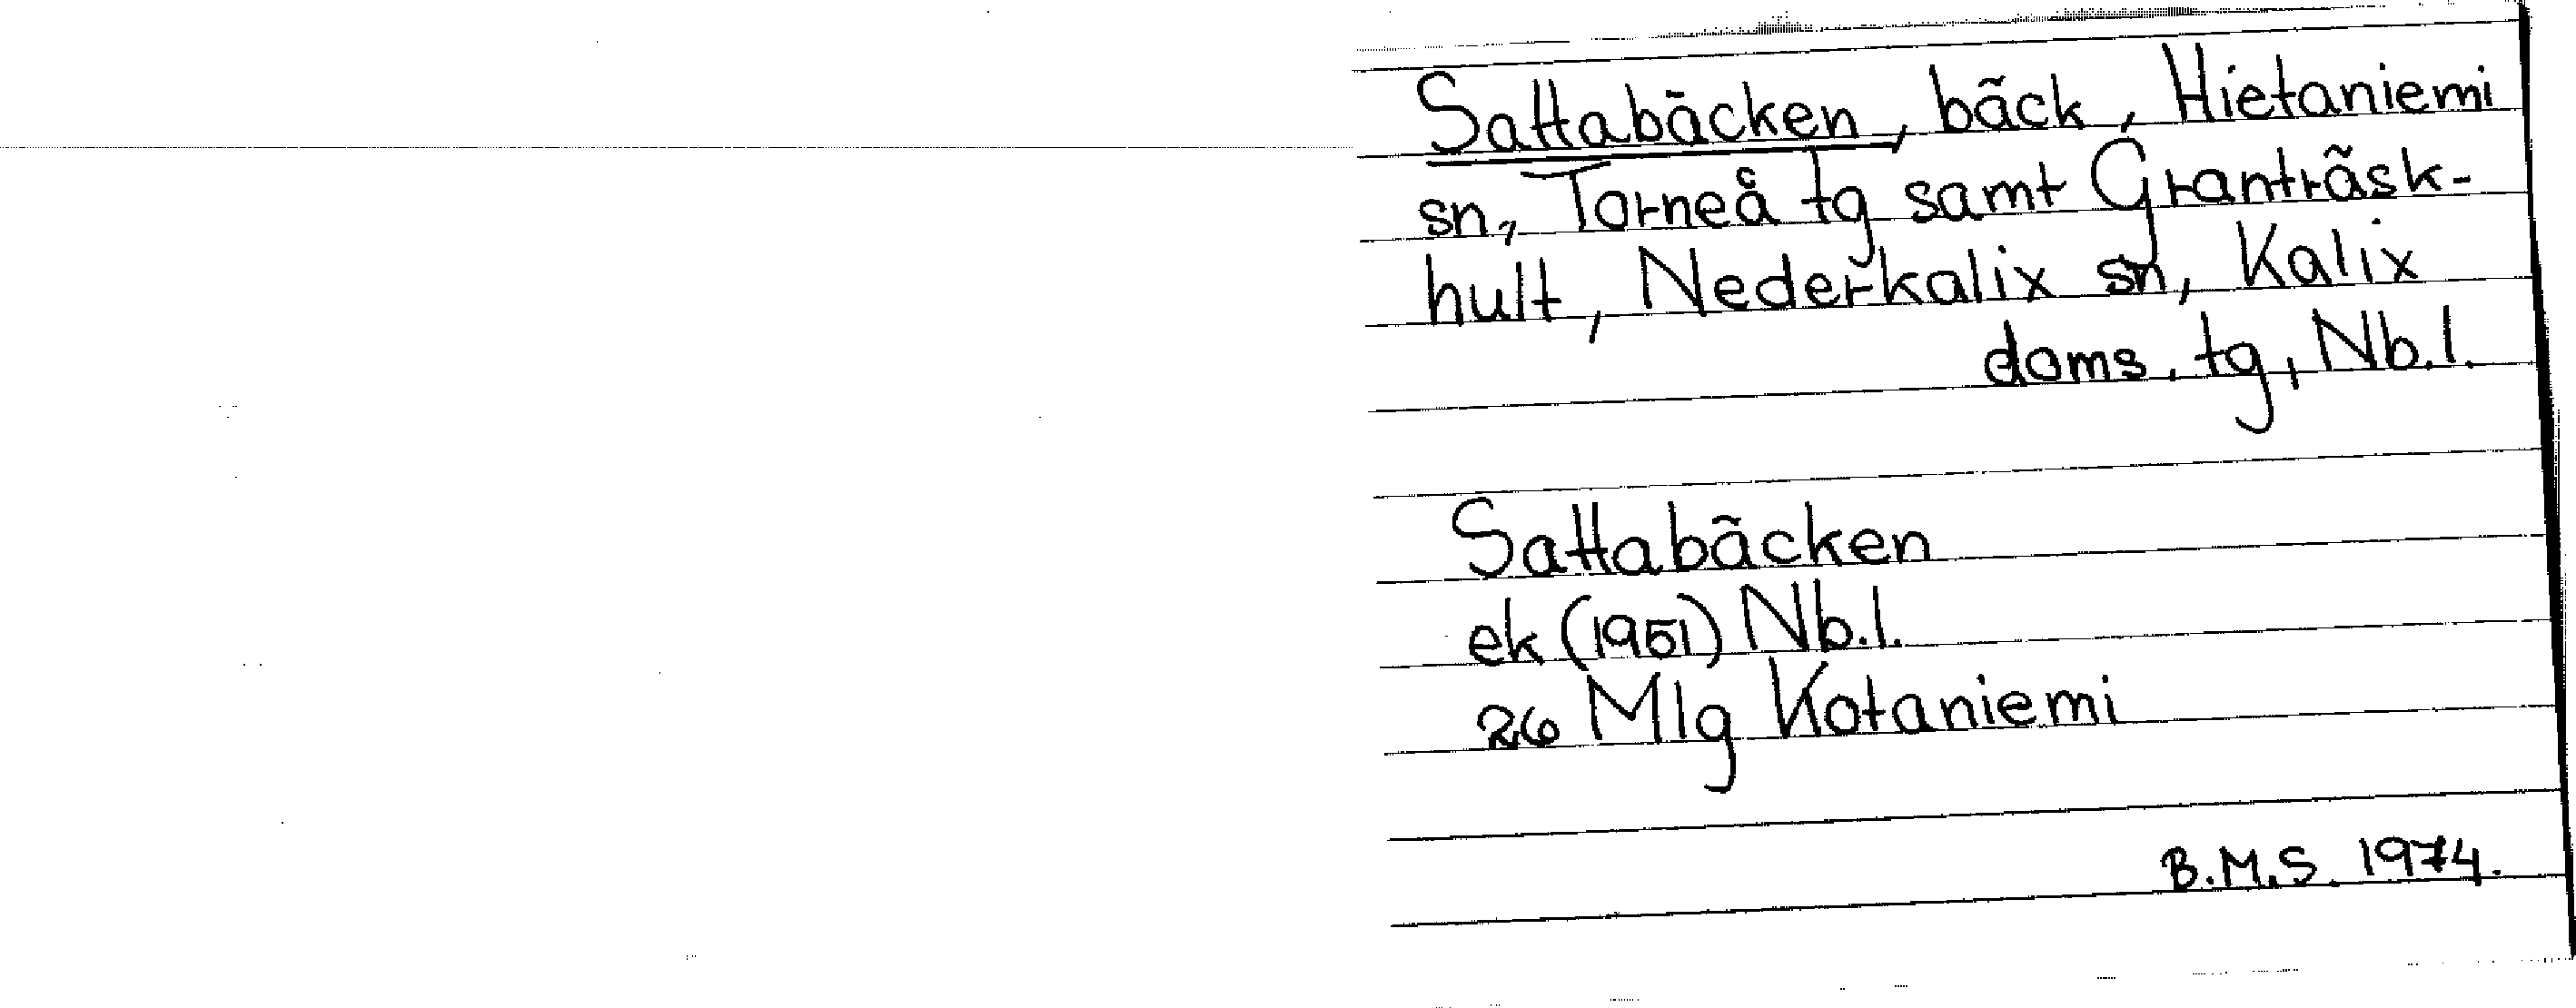 Sattabäcken, bäck, Hietaniemi
sn, Torneå tg samt Granträsk-
hult, Nederkalix sn, Kalix
doms. tg, Nb.l.
Sattabäcken
ek (1951) Nb.l.
26 Mlg Kotaniemi
B.M.S. 1974.